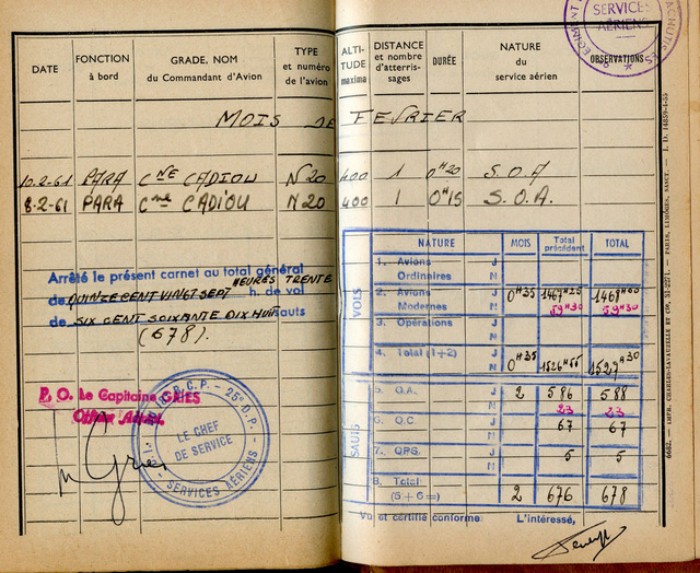 SERVICES
AÉRIENS
DATE
FONCTION
à bord
GRADE, NOM
du Commandant d'Avion
TYPE
et numéro
de l'avion
ALTI-
TUDE
maxima
DISTANCE
et nombre
d'atterris-
sages
DURÉE
NATURE
du
service aérien
OBSERVATIONS
MOIS DE FEVRIER
10.2.61 PARA CNE CADIOU N 20 400 1 0H20 S.O.A
8-2-61 PARA Cne CADIOU N 20 400 1 0H15 S.O.A.
Arrêté le présent carnet au total général
de QUINZE CENT VINGT SEPT HEURES TRENTE h. de vol
de SIX CENT SOIXANTE DIX HUIT sauts
(678).
P. O. Le Capitaine GRIES
Gries
25e D.P.
LE CHEF
DE SERVICE
SERVICES AÉRIENS
NATURE MOIS Total précédent TOTAL
VOLS
1. Avions J
Ordinaires N
2. Avions J 0H35
Modernes N 59H30 59H30
3. Opérations J
N
4. Total (1+2) 0H35 1527H30
SAUTS
5. O.A. J 2 586 588
N 23 23
6. O.C. J 67 67
N
7. OPS. J 5 5
N
8. Total
(5+6=) 2 676 678
Vu et certifié conforme L'intéressé,
6682. — IMPR. CHARLES-LAVAUZELLE ET Cie, — PARIS, LIMOGES, NANCY. — I. D. 14859-1-55